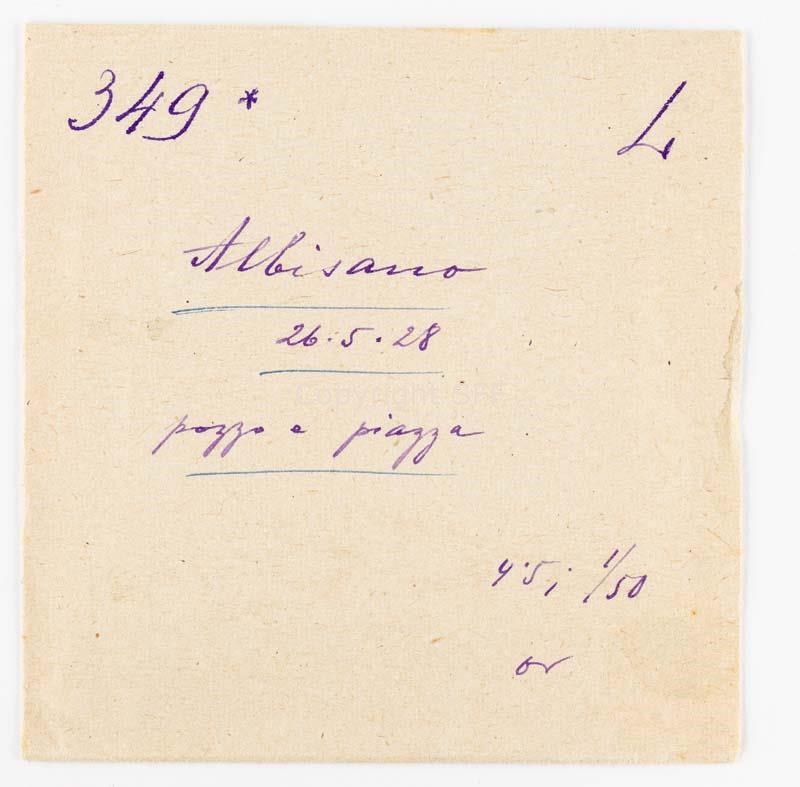 349 *
L
Albisano
26.5.28
pozzo e piazza
4.5; 1/50
or